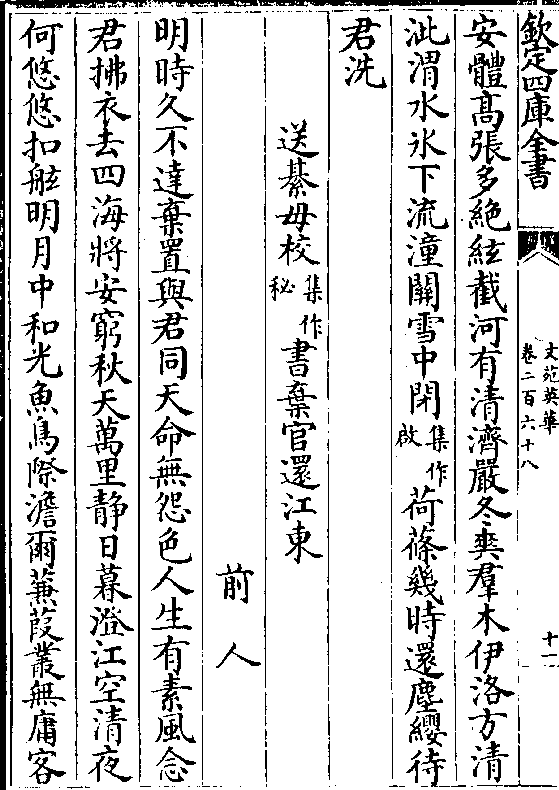 欽定四庫全書
文苑英華
卷二百六十八
十一
安體髙張多絶絃截河有清濟嚴冬爽羣木伊洛方清
泚渭水氷下流潼關雪中閉集作啟荷蓧幾時還塵纓待
君洗
送綦毋校集作秘書棄官還江東
前人
明時久不達棄置與君同天命無怨色人生有素風念
君拂衣去四海將安窮秋天萬里静日暮澄江空清夜
何悠悠扣舷明月中和光魚鳥際澹爾蒹葭叢無庸客